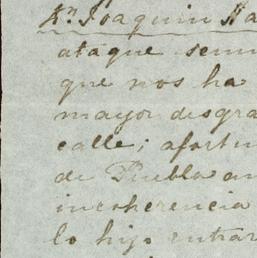 Dn. Joaquin
ataque
que nos ha
mayor desgra
calle; afortu
de Puebla an
incoherencia
lo hijo entrar